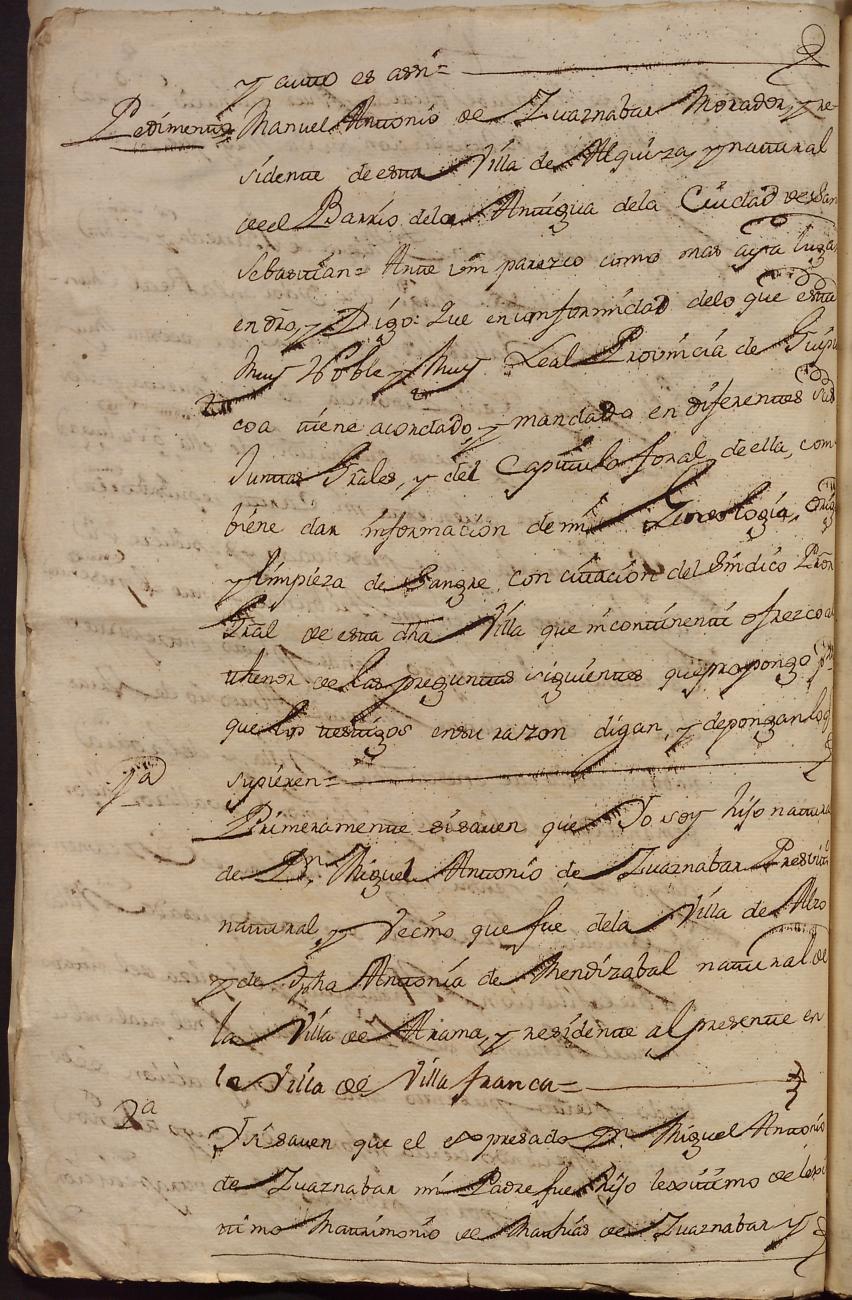 y auto es assi=
Pedimento= Manuel Antonio de Zuaznabar Morador, y re-
sidente de esta Villa de Alquiza, y natural
de el Barrio dela Antigua dela Ciudad de San
Sebastian= Ante vm parezco como mas aya lugar
en dro, y Digo: Que en conformidad delo que esta
Muy Noble, y Muy Leal Provincia de Guipuz
coa tiene acordado, y mandado en diferentes sus
Juntas Grales, y del Capitulo foral de ella, com
biene dar informacion de mi Geneologia,
y limpieza de Sangre, con citacion del Sindico Pror
Gral de esta dha Villa que incontinenti ofrezco al
thenor de las preguntas siguientes que propongo
que los testigos en su razon digan, y depongan lo q
supieren=
1a
Primeramente si saven que Yo soy hijo natural
de Dn. Miguel Antonio de Zuaznabar Presvit
natural, y Vecino que fue dela Villa de Alzo
y de Jpha Antonia de Mendizabal natural de
la Villa de Arama, y residente al presente en
la Villa de Villafranca=
2a
Yt si saven que el expresado Dn. Miguel Antonio
de Zuaznabar mi Padre fue hijo lexitimo de lexi
timo Matrimonio de Mathias de Zuaznabar y